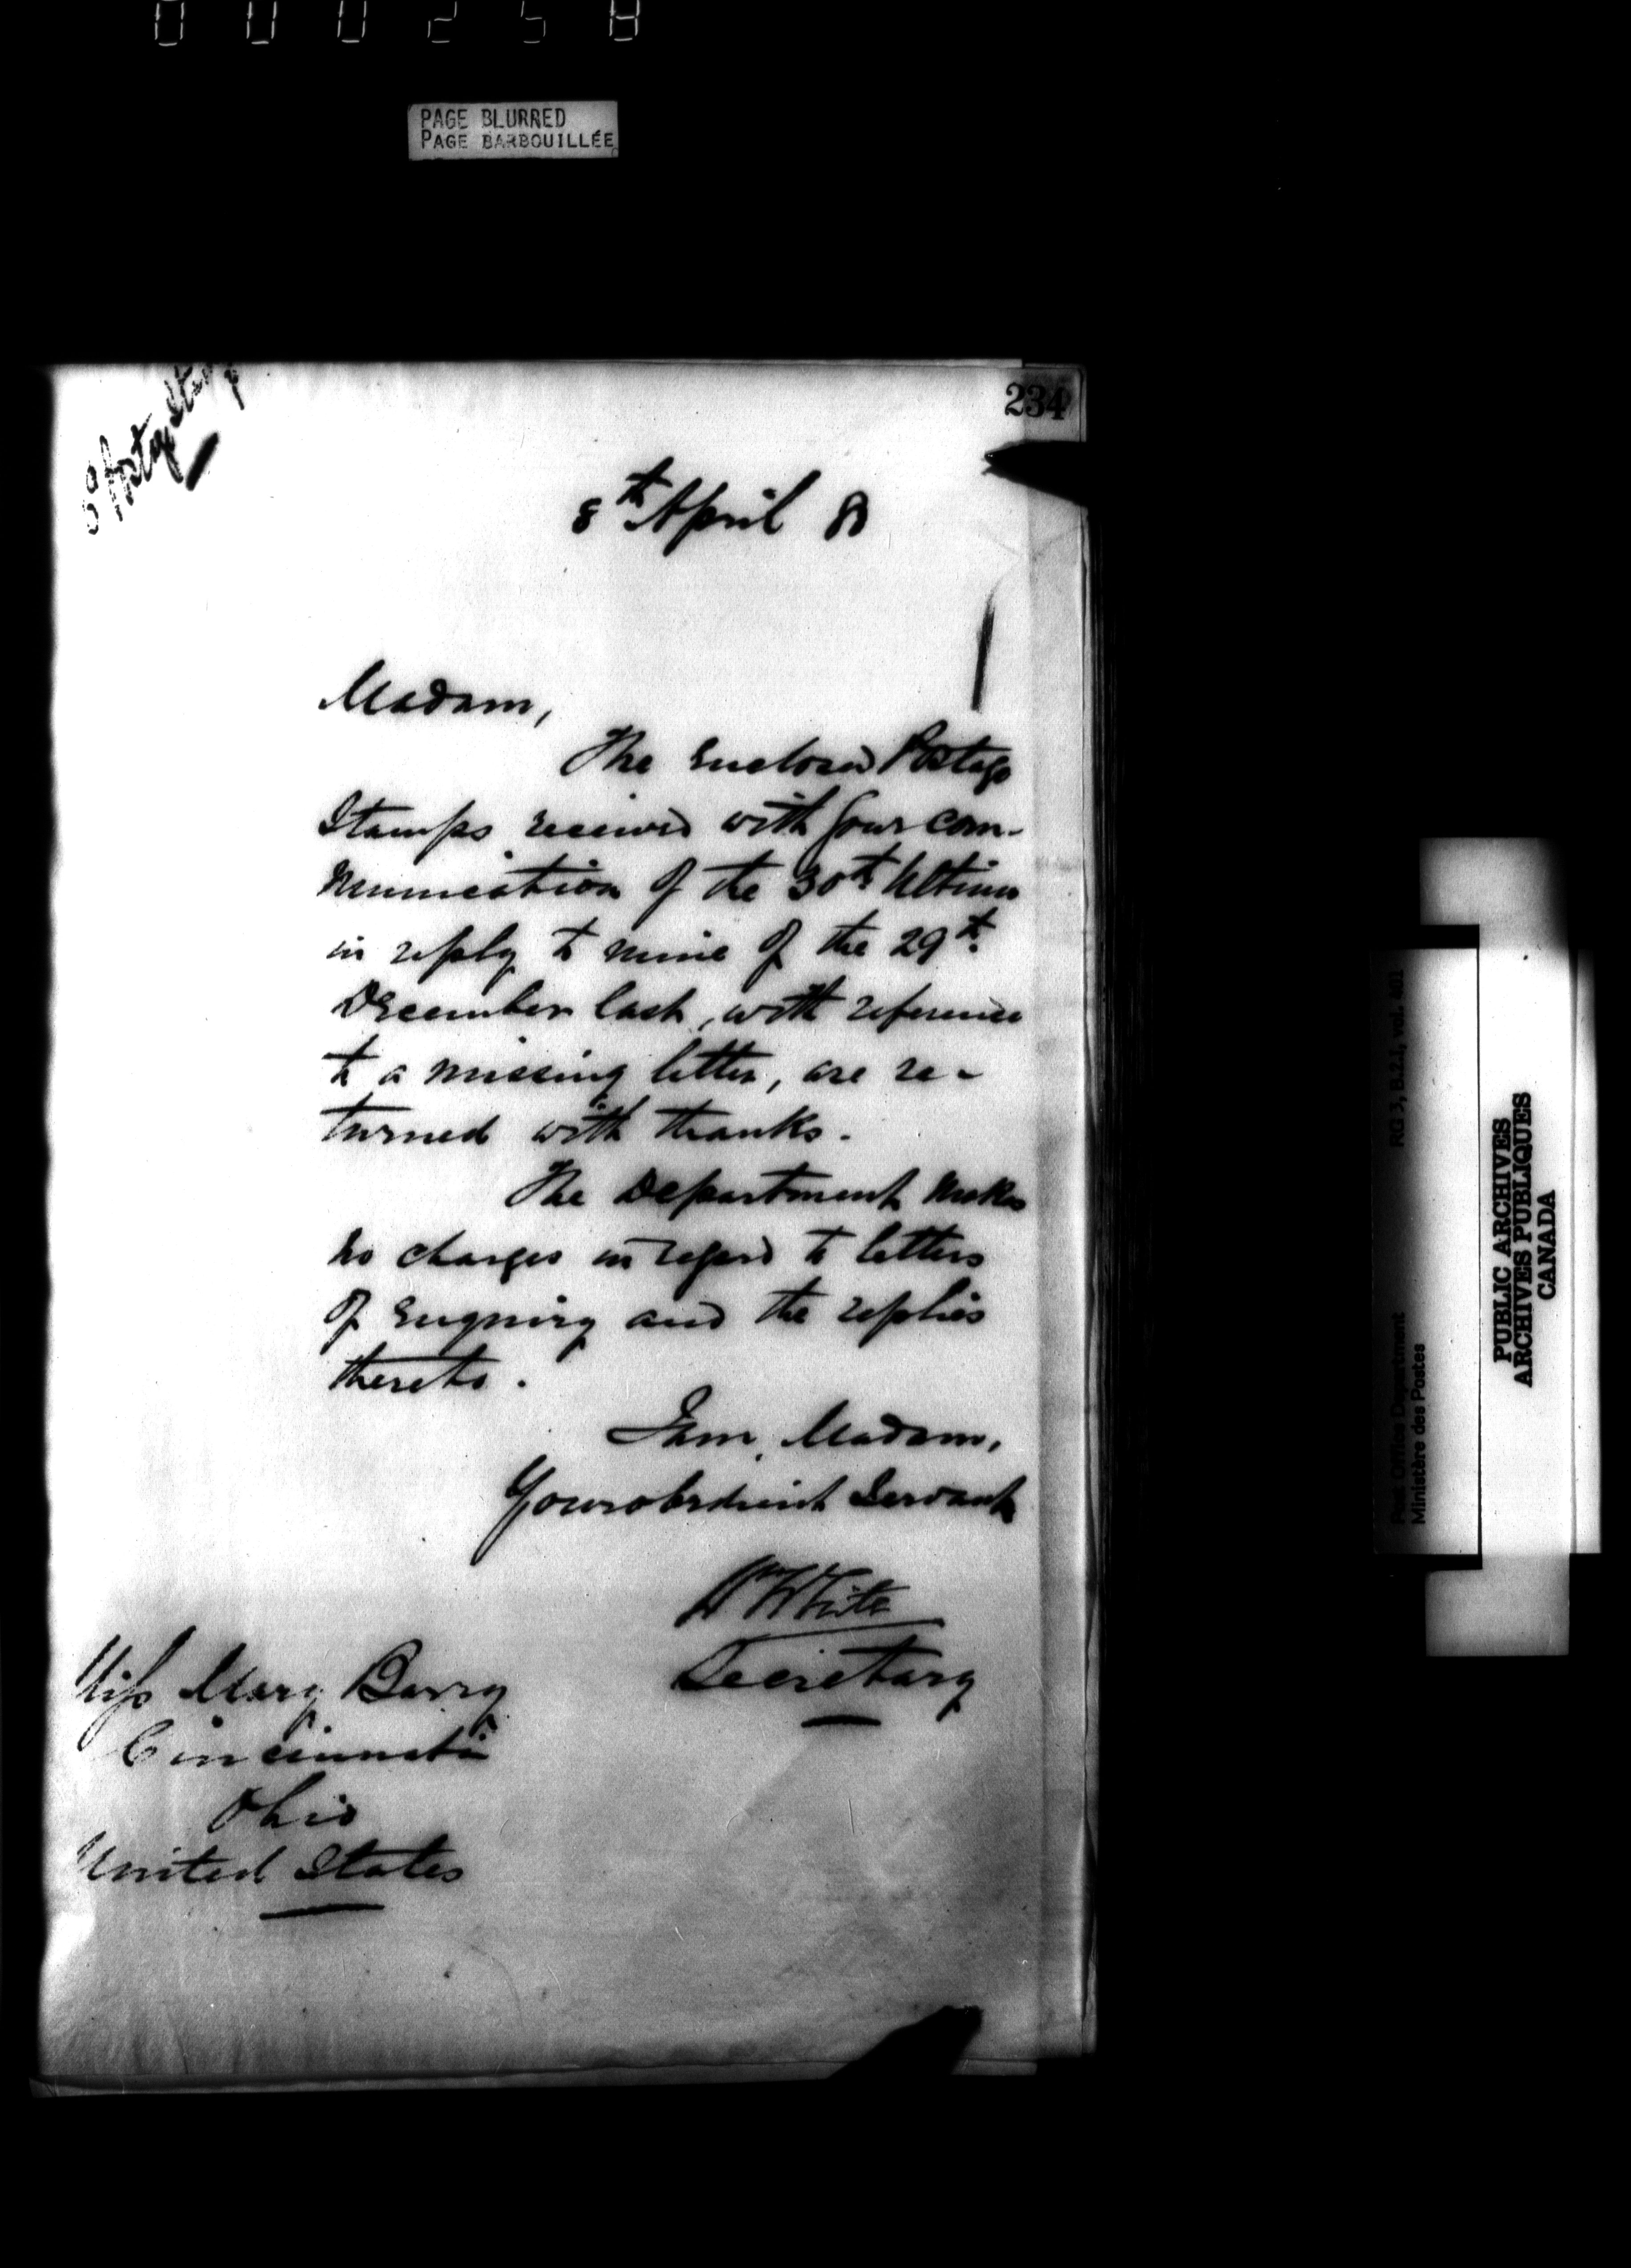 000258
PAGE BLURRED
PAGE BARBOUILLÉE
234
Postage Stamp
8th April 8
Madam,
The Enclosed Postage
Stamps received with your com-
munication of the 30th Ultimo
in reply to mine of the 29th
December last, with reference
to a missing letter, are re-
turned with thanks.
The Department makes
no charges in regard to letters
of Enquiry and the replies
thereto.
I am, Madam,
Your obedient Servant
Wm White
Secretary
Miss Mary Barry
Cincinnati
Ohio
United States
Post Office Department RG 3, B.2.1, vol. 401
Ministère des Postes
PUBLIC ARCHIVES
ARCHIVES PUBLIQUES
CANADA